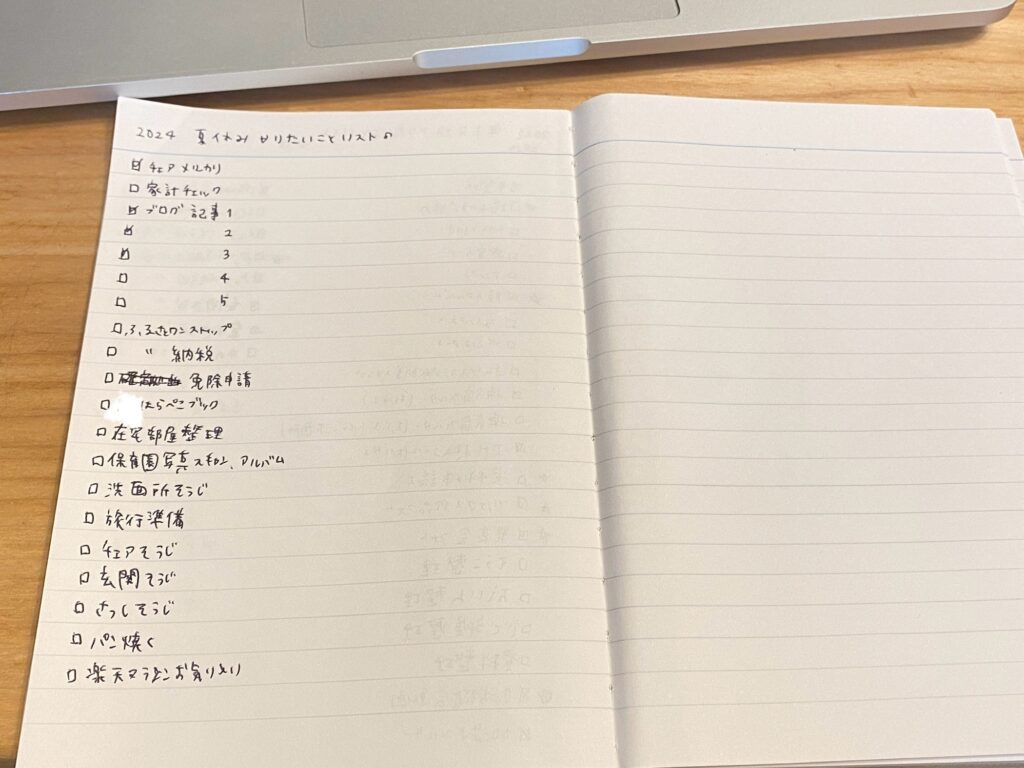 2024 夏休みやりたいことリスト
☑ チェアメルカリ
□ 家計チェック
☑ ブログ記事1
☑ 2
☑ 3
□ 4
□ 5
□ ふるさとワンストップ
□ 〃 納税
□ 免除申請
□ はらぺこブック
□ 在宅部屋整理
□ 保育園写真スキャン、アルバム
□ 洗面所そうじ
□ 旅行準備
□ チェアそうじ
□ 玄関そうじ
□ さっしそうじ
□ パン焼く
□ 楽天マラソンお買いもの